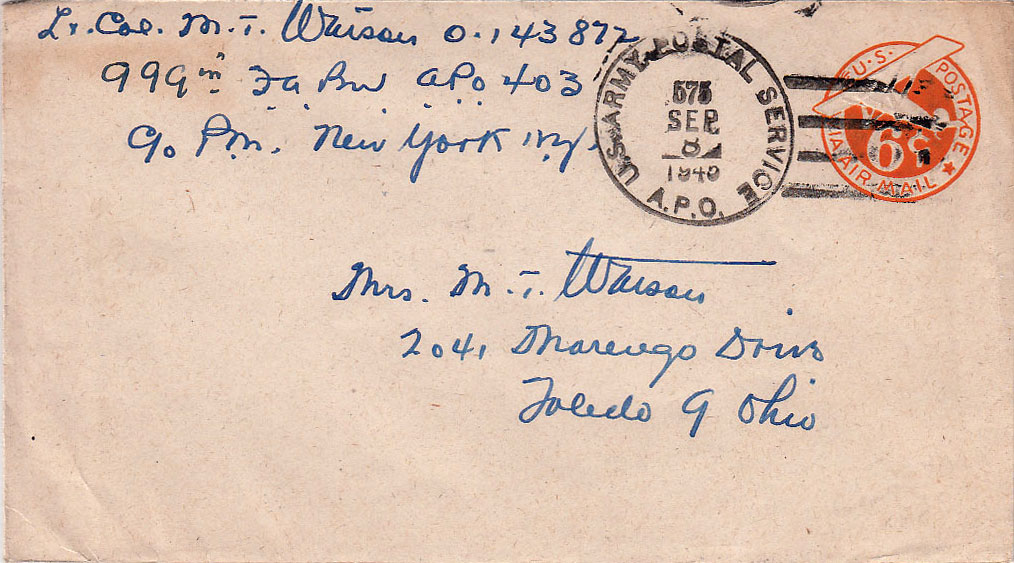 Lt. Col. M. T. Watson O-143872
999th FA Bn APO 403
c/o P.M. New York N.Y.
U.S. ARMY POSTAL SERVICE
575
SEP
8
1945
A.P.O.
U.S. POSTAGE
6¢
VIA AIR MAIL
Mrs. M. T. Watson
2041 Marengo Drive
Toledo 9 Ohio